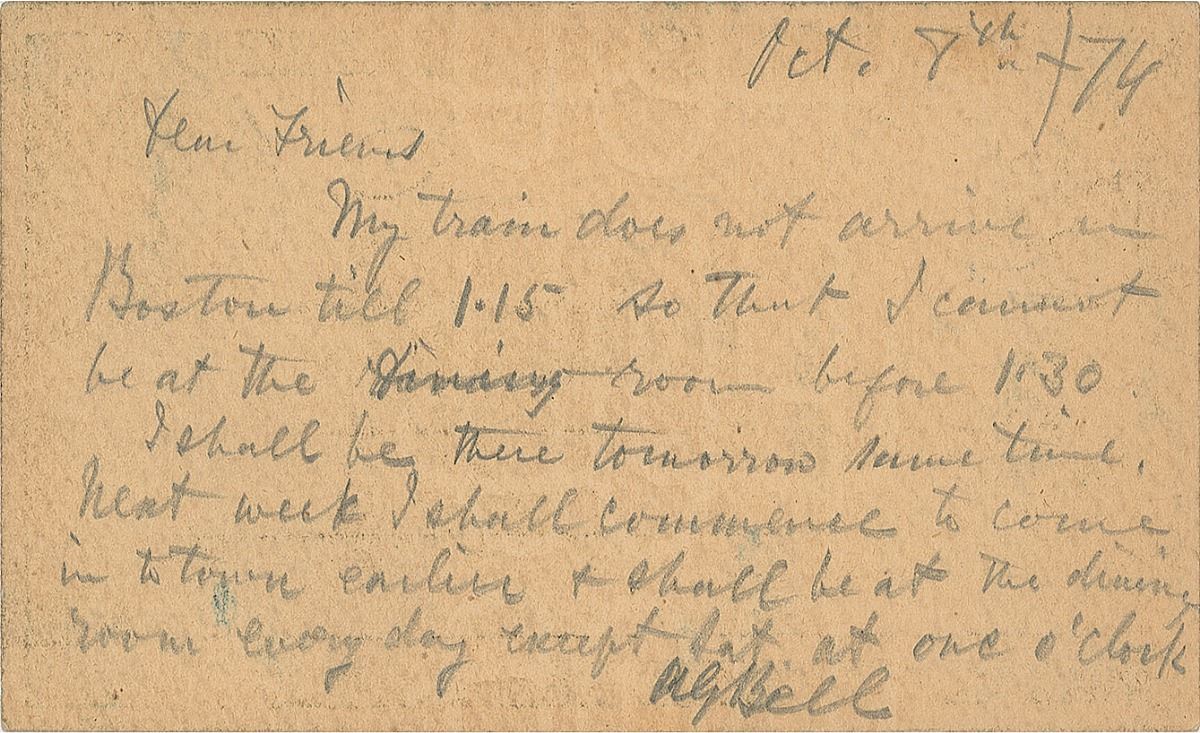 Oct. 7th / 74
Dear Friend
My train does not arrive in
Boston till 1.15 so that I cannot
be at the dining room before 1.30
I shall be there tomorrow same time.
Next week I shall commence to come
in to town earlier + shall be at the dining
room every day except Sat. at one o'clock
AGBell